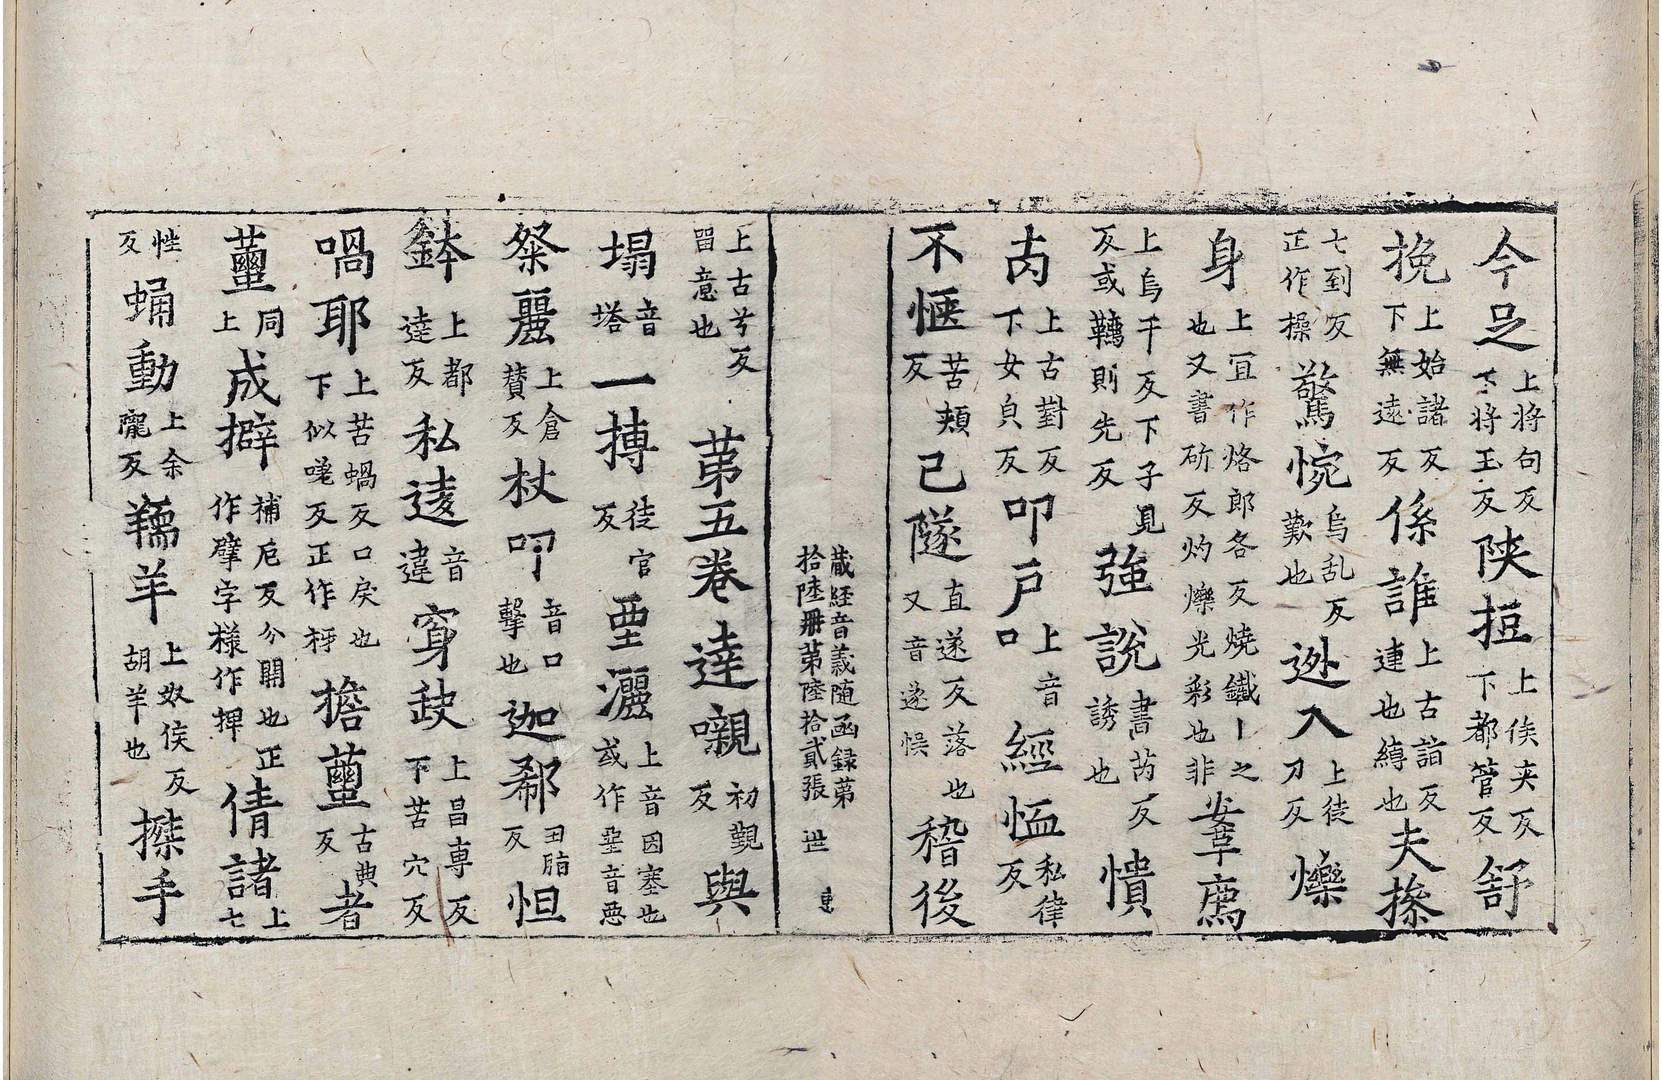 今足上將句反下將玉反陝挋上侯夾反下都管反舒
挽上始諸反下無遠反係誰上古詣反連也縛也夫摻
七到反正作操驚惋烏乱反歎也迯入上徒刀反爍
身上冝作烙郎各反燒鐵丨之也又書斫反灼爍光彩也非鞌韋鳸
上烏千反下子見反或韉則先反強說書芮反誘也憒
芮上古對反下女貞反叩戶上音口經恤私律反
不愜苦頰反已隧直遂反落也又音遂悮稽後
藏經音義随函録苐拾陸冊苐陸拾貳張 世
上古兮反留意也 苐五卷 達嚫初覲反與
塌音塔一摶徒官反垔灑上音因塞也或作堊音惡
粲麗上倉賛反杖叩音口擊也迦郗丑脂反怛
鉢上都達反私逵音違穿缼上昌専反下苦穴反
喎耶上苦蝸反口戾也下似嗟反正作衺擔虆古典反者
虆同上成擗補戹反分開也正作擘字樣作捭倩諸上七
性反蛹動上余隴反羺羊上奴侯反胡羊也搩手